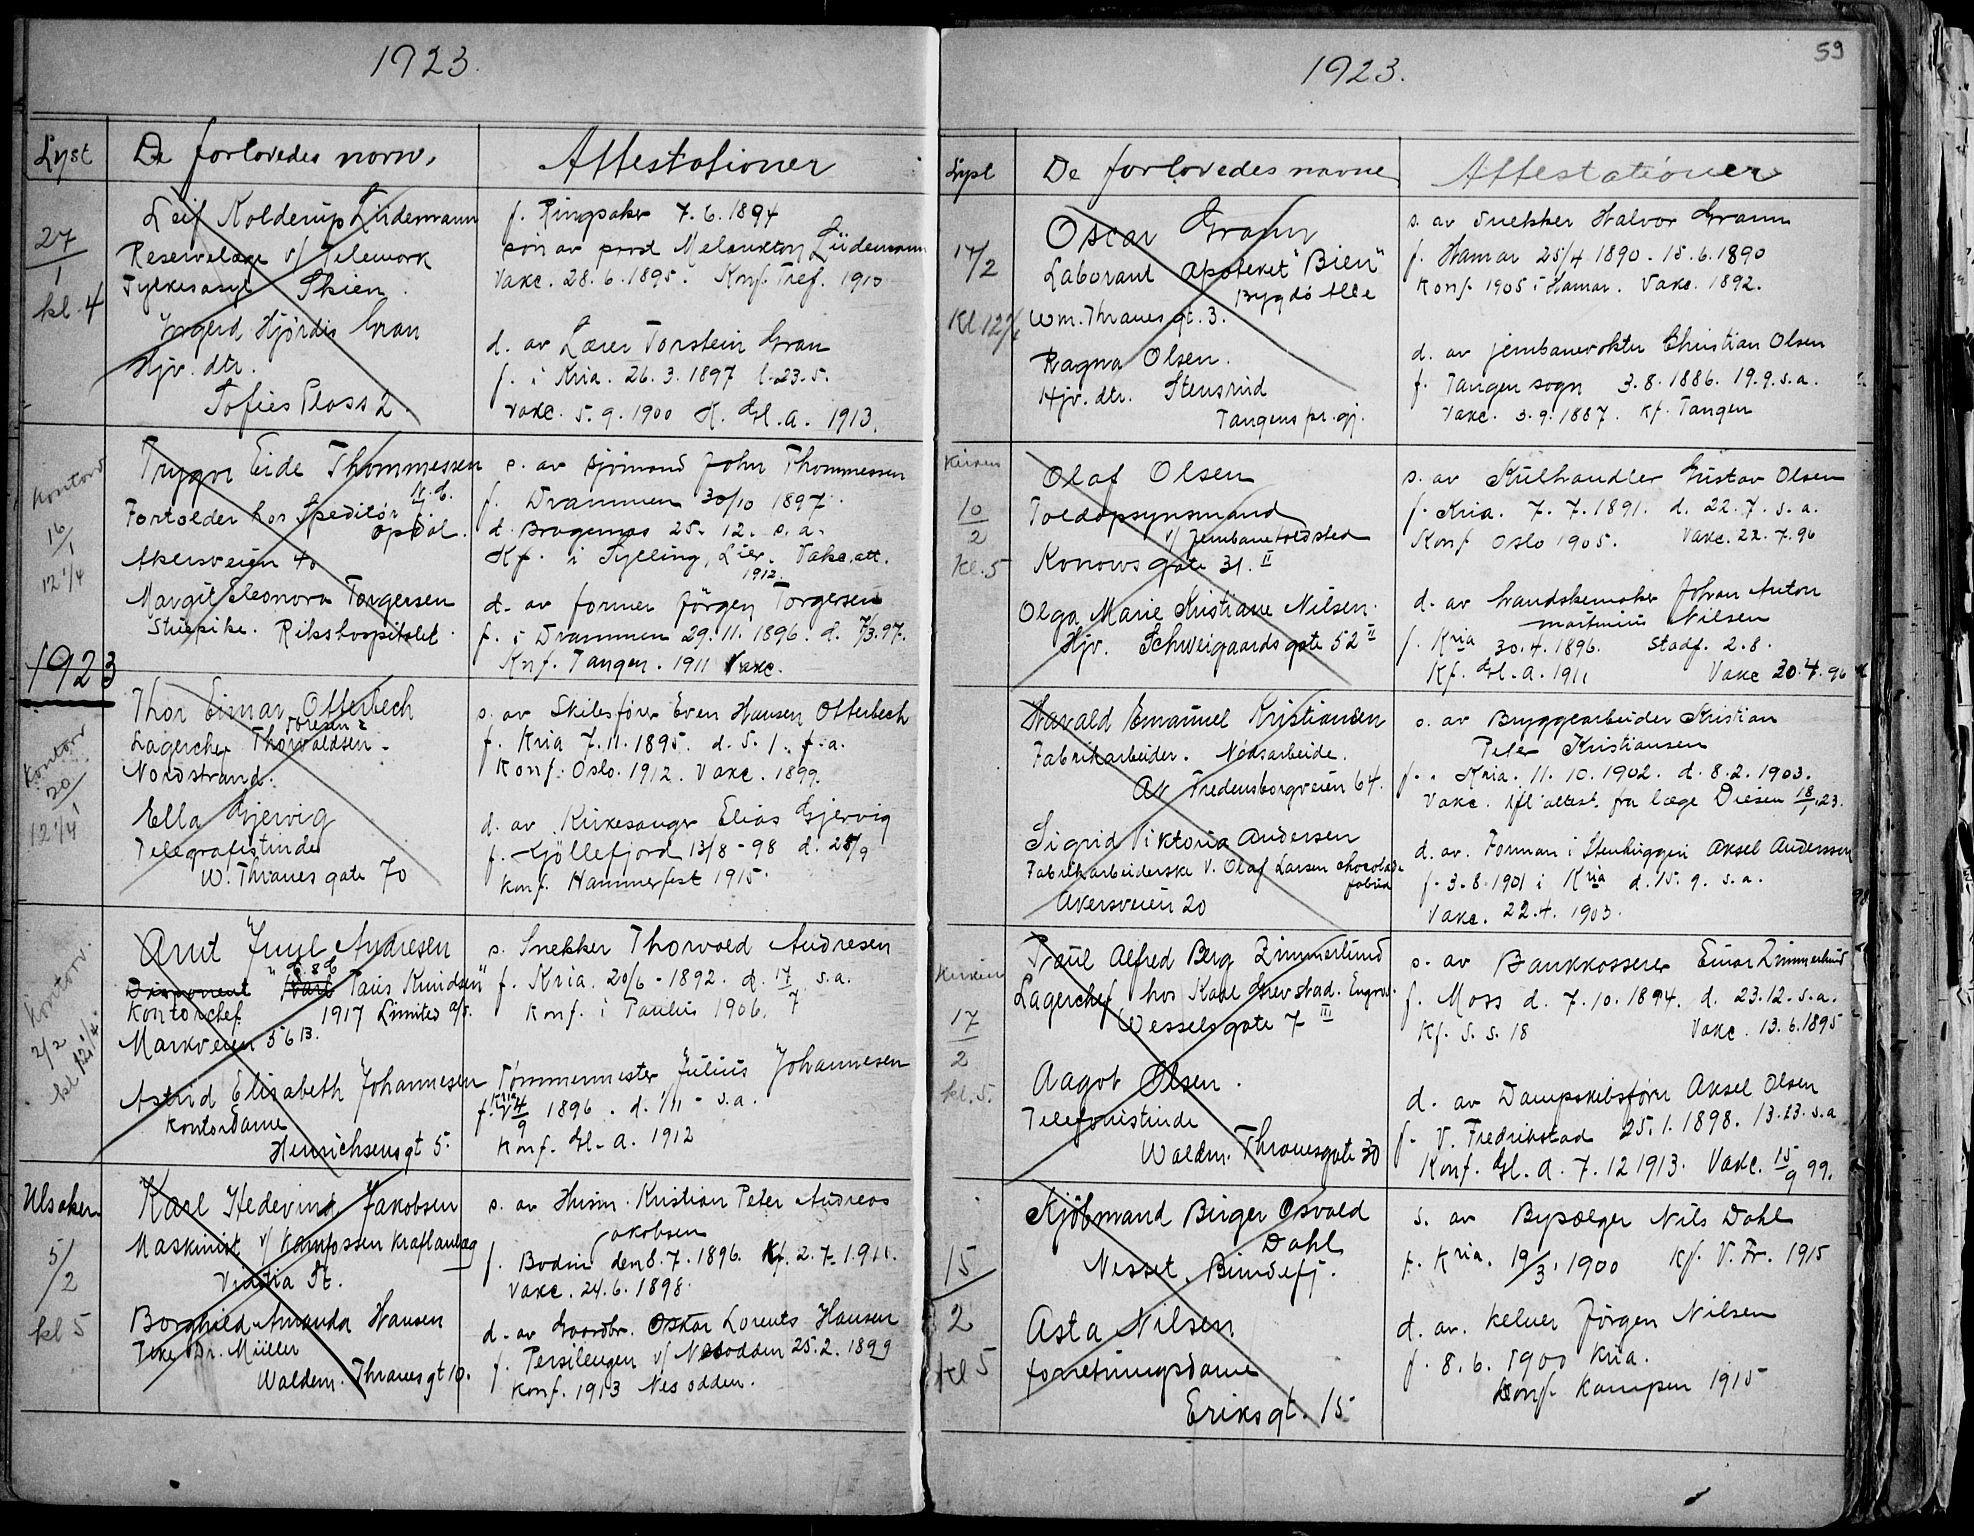 1923.
Lyst
De forlovedes navn.
Attestationer
27/1
kl. 4
Leif Kolderup Lindemann
Reservelæge v/ Telemark
Fylkesasyl Skien.
Ingerd Hjørdis Gran
Hjv. dtr.
Sofies Plass 2.
f. Ringsaker 7.6.1894
søn av prost Melankton Lindemann
Vakc. 28.6.1895. Konf. 1910
d. av Lærer Torstein Gran
f. i Kria. 26.3.1897 23.5.
vakc. 5.9.1900 K. Gl.a. 1913.
Kontoret
16/1
12 1/4
Trygve Eide Thommessen
Fortolder hos Speditør
Opdøl.
Akersveien 40
Margit Eleonora Torgersen
Stuepike. Rikshospitalet.
s. av Sjømand John Thommessen
f. Drammen 30/10 1897.
d. Bragernes 25. 12. s.a.
Kf. i Sylling, Lier. Vakc. att.
1912.
d. av former Jörgen Torgersen
f. i Drammen 29.11.1896. d. 7/3.97.
Knf. Tangen. 1911 Vakc.
1923
Kontor
20/1
12 1/4
Thor Einar Otterbech
Lagerchef Thorvaldsen
Nordstrand.
Ella Gjervig
Telegrafistinde
W. Thranes gate 70
s. av Skibsfører Even Hansen Otterbech
f. Kria 7.11.1895. d. 5.1. f.a.
Konf. Oslo. 1912. Vakc. 1899.
d. av Kirkesanger Elias Gjervig
f. Kjöllefjord 13/8-98 d. 28/9
Konf. Hammerfest 1915.
Kontor.
2/2
kl. 12 1/4.
Arnt Juul Andresen
Disponent Paus Knudsen
Kontorchef 1917 Limited a/s.
Markveien 56 B.
Astrid Elisabeth Johannesen
Kontordame
Henrichsensgt 5.
s. Snekker Thorvald Andresen
f. Kria. 20/6-1892. d. 17/7 s.a.
Konf. i Paulus 1906.
Tømmermester Julius Johannesen
f. Kria 4/9 1896. d. 1/11 - s.a.
Konf. Gl-a. 1912
Ulsaker
5/2
kl 5
Karl Hedevind Jakobsen
Maskinist v/ Kamfossen Kraftanlæg
St.
Borghild Amanda Hansen
Dr. Müller
Waldem. Thranesgt 10.
s. av Husm. Kristian Peter Andreas
Jakobsen
f. Bodin den 8.7.1896. Kf. 2.7.1911.
Vakc. 24.6.1898.
d. av Gaardbr. Oskar Lorents Hansen
f. Persilengen v/ Nesodden 25.2.1899
Konf. 1913 Nesodden.
59
1923.
Lyst
De forlovedes navne
Attestationer
17/2
Kl. 12 1/4
Oscar Gramm
Laborant apoteket "Bien"
Bygdø Alle
Wm. Thranes gt. 3.
Ragna Olsen.
Hjv. dtr. Stensrud
Tangen pr. gj.
s. av Snekker Halvor Gramm
f. Hamar 25/4 1890 - 15.6.1890
Konf 1905 i Hamar. Vakc. 1892.
d. av jernbanevokter Christian Olsen
f. Tangen sogn 3.8.1886. 19.9.s.a.
Vakc. 3.9.1887. Kf. Tangen
Kirken
10/2
kl. 5
Olaf Olsen
Toldopsynsmand
v/ Jernbanetoldsted
Konows gate 31. II
Olga Marie Kristiane Nilsen.
Hjv. Schweigaards gate 52 II
s. av Kulhandler Gustav Olsen
f. Kria. 7.7.1891. d. 22.7. s.a.
Konf Oslo 1905. Vakc. 22.7.96
d. av handskemaker Johan Anton
Martinius Nilsen
f. Kria 30.4.1896. Stadf. 2.8.
Kf. Gl.a. 1911 Vakc 30.4.96
Harald Emanuel Kristiansen
Fabrikarbeider. Nødsarbeide.
Av Fredensborgveien 64.
Sigrid Viktoria Andersen
Fabrikarbeiderske v. Olaf Larsen chocolade
fabrik
Akersveien 20
s. av Bryggearbeider Kristian
Peter Kristiansen
f. Kria. 11.10.1902. d. 8.2.1903.
Vakc. ifl attest. fra læge Diesen 18/1 23.
d. av. Forman i Stenhuggeri Aksel Anderssen
f. 3.8.1901 i Kria d. 15.9. s.a.
Vakc. 22.4. 1903.
Kirken
17/2
kl. 5.
Paul Alfred Berg Zimmerlund
Lagerchef hos Kaare Grevstad. Engros.
Wessels gate 7 III
Aagot Olsen.
Telefonistinde
Waldm. Thranesgate 30
s. av Bankkasserer Einar Zimmerlund
f. Moss d. 7.10.1894. d. 23.12.s.a.
Kf. S. S. 18 Vakc. 13.6.1895
d. av Dampskibsfører Aksel Olsen
f. V. Fredrikstad 25.1.1898. 13.23.s.a
Konf. Gl.a. 7.12 1913. Vakc. 15/9 99.
15/2
kl 5
Kjøbmand Birger Osvald
Dahl
Nesset. Bundefj.
Asta Nilsen
forretningsdame
Eriksgt. 15
s. av Bysælger Nils Dahl
f. Kria. 19/3. 1900 Kf. V. Fr. 1915
d. av. kelner Jørgen Nilsen
f. 8.6.1900 Kria.
Konf. Kampen 1915